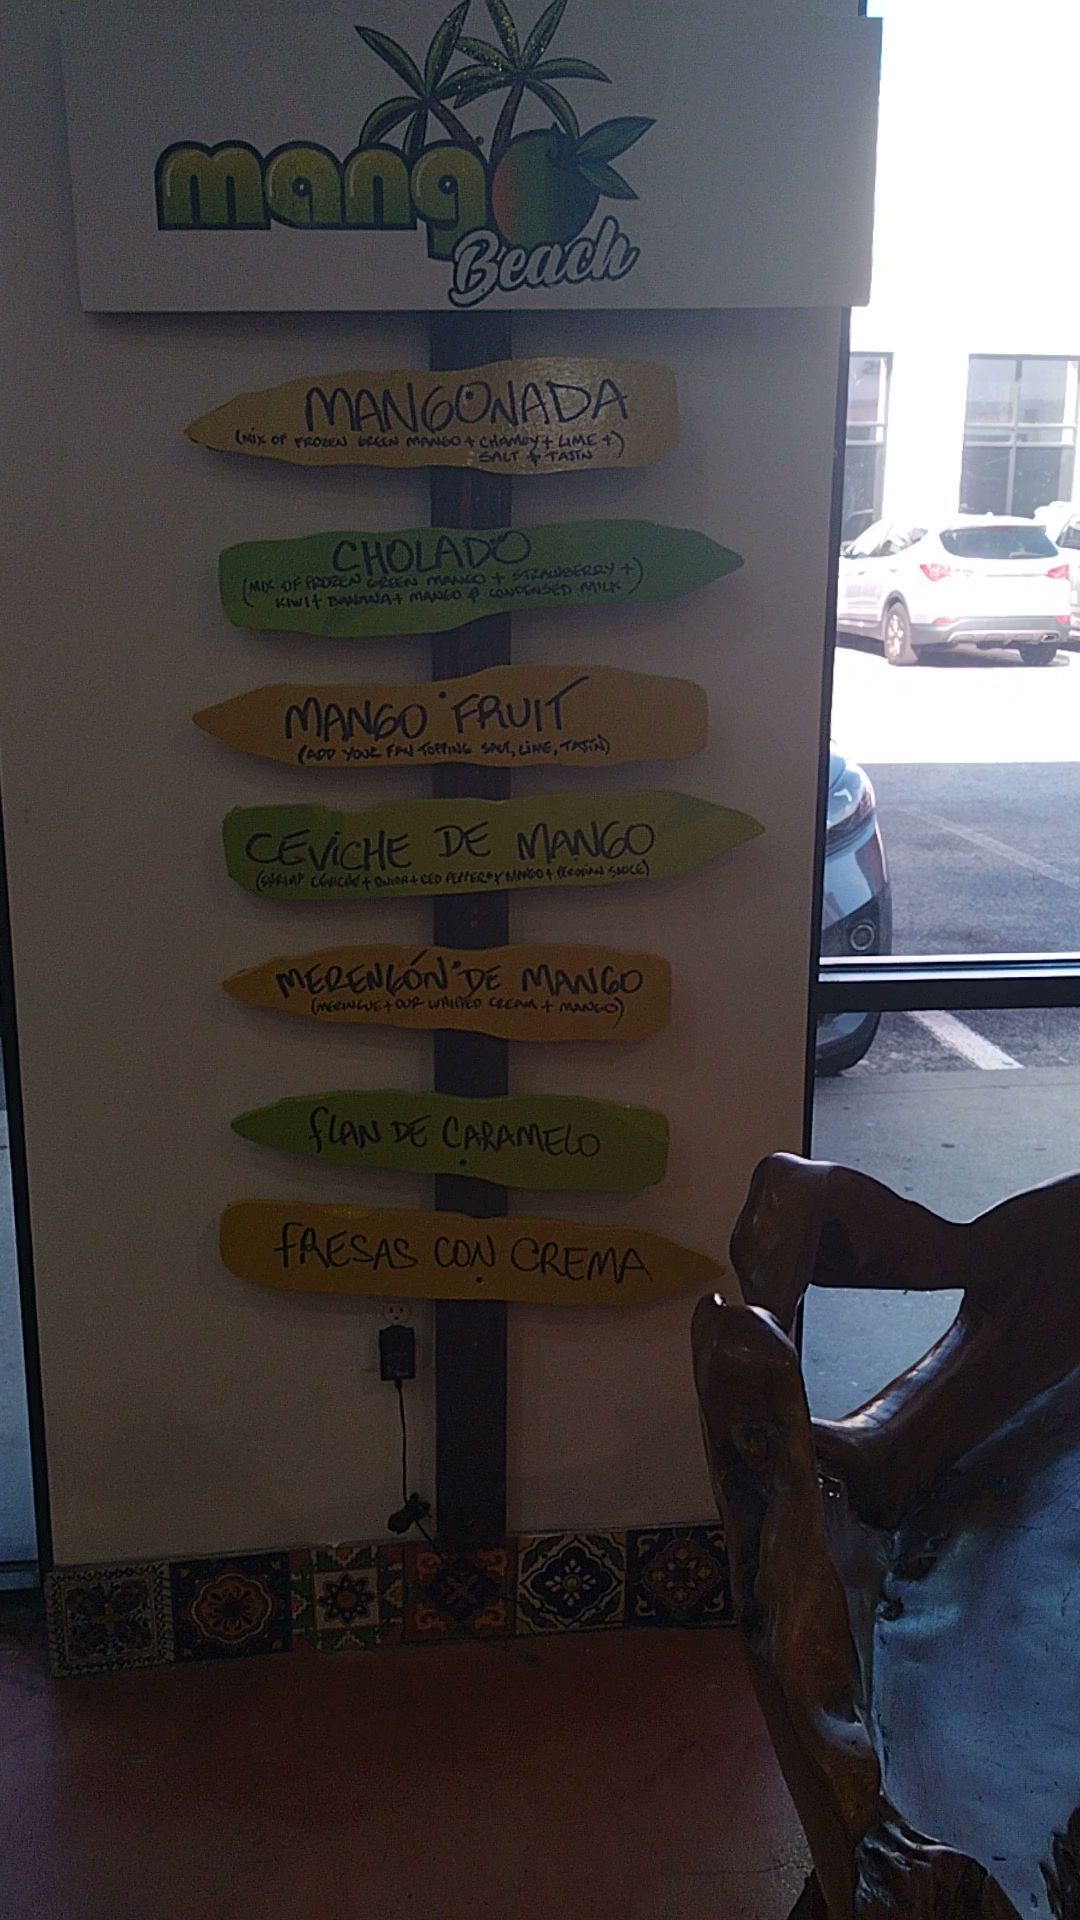 mango
Beach
MANGONADA
(MIX OF FROZEN GREEN MANGO + CHAMOY + LIME +)
SALT & TAJIN
CHOLADO
(MIX OF FROZEN GREEN MANGO + STRAWBERRY +)
KIWI + BANANA + MANGO & CONDENSED MILK
MANGO FRUIT
(ADD YOUR FAV TOPPING SALT, LIME, TAJIN)
CEVICHE DE MANGO
(SHRIMP CEVICHE + ONION + RED PEPPER + MANGO + PERUVIAN SAUCE)
MERENGÓN DE MANGO
(MERINGUE + OUR WHIPPED CREAM + MANGO)
FLAN DE CARAMELO
FRESAS CON CREMA